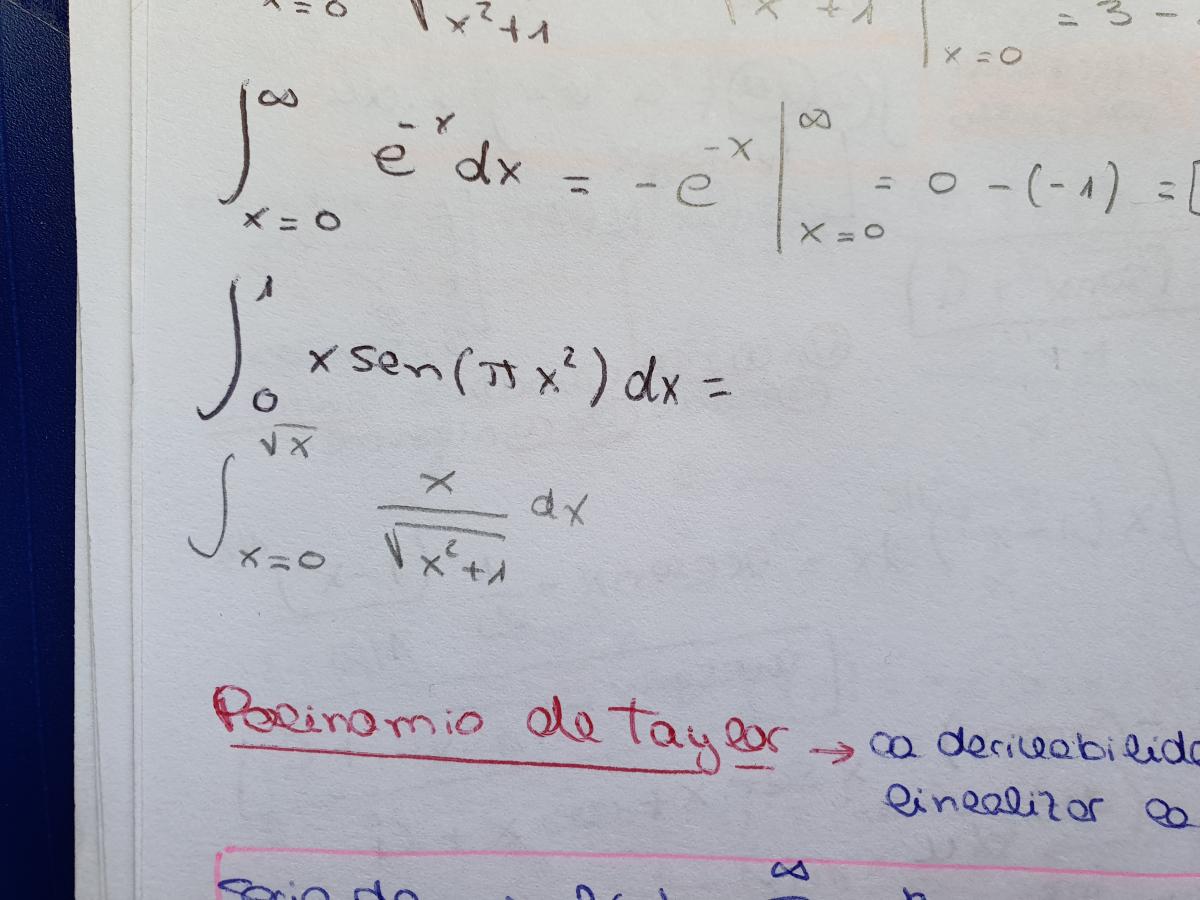 x=0 √x²+1 √x²+1 | x=0 = 3 -
∫_{x=0}^{∞} e^{-x} dx = -e^{-x} |_{x=0}^{∞} = 0 - (-1) = [
∫_0^1 x sen(πx²) dx =
∫_{x=0}^{√x} x/√(x²+1) dx
Polinomio de taylor → la derivabilida
linealizar la
∞